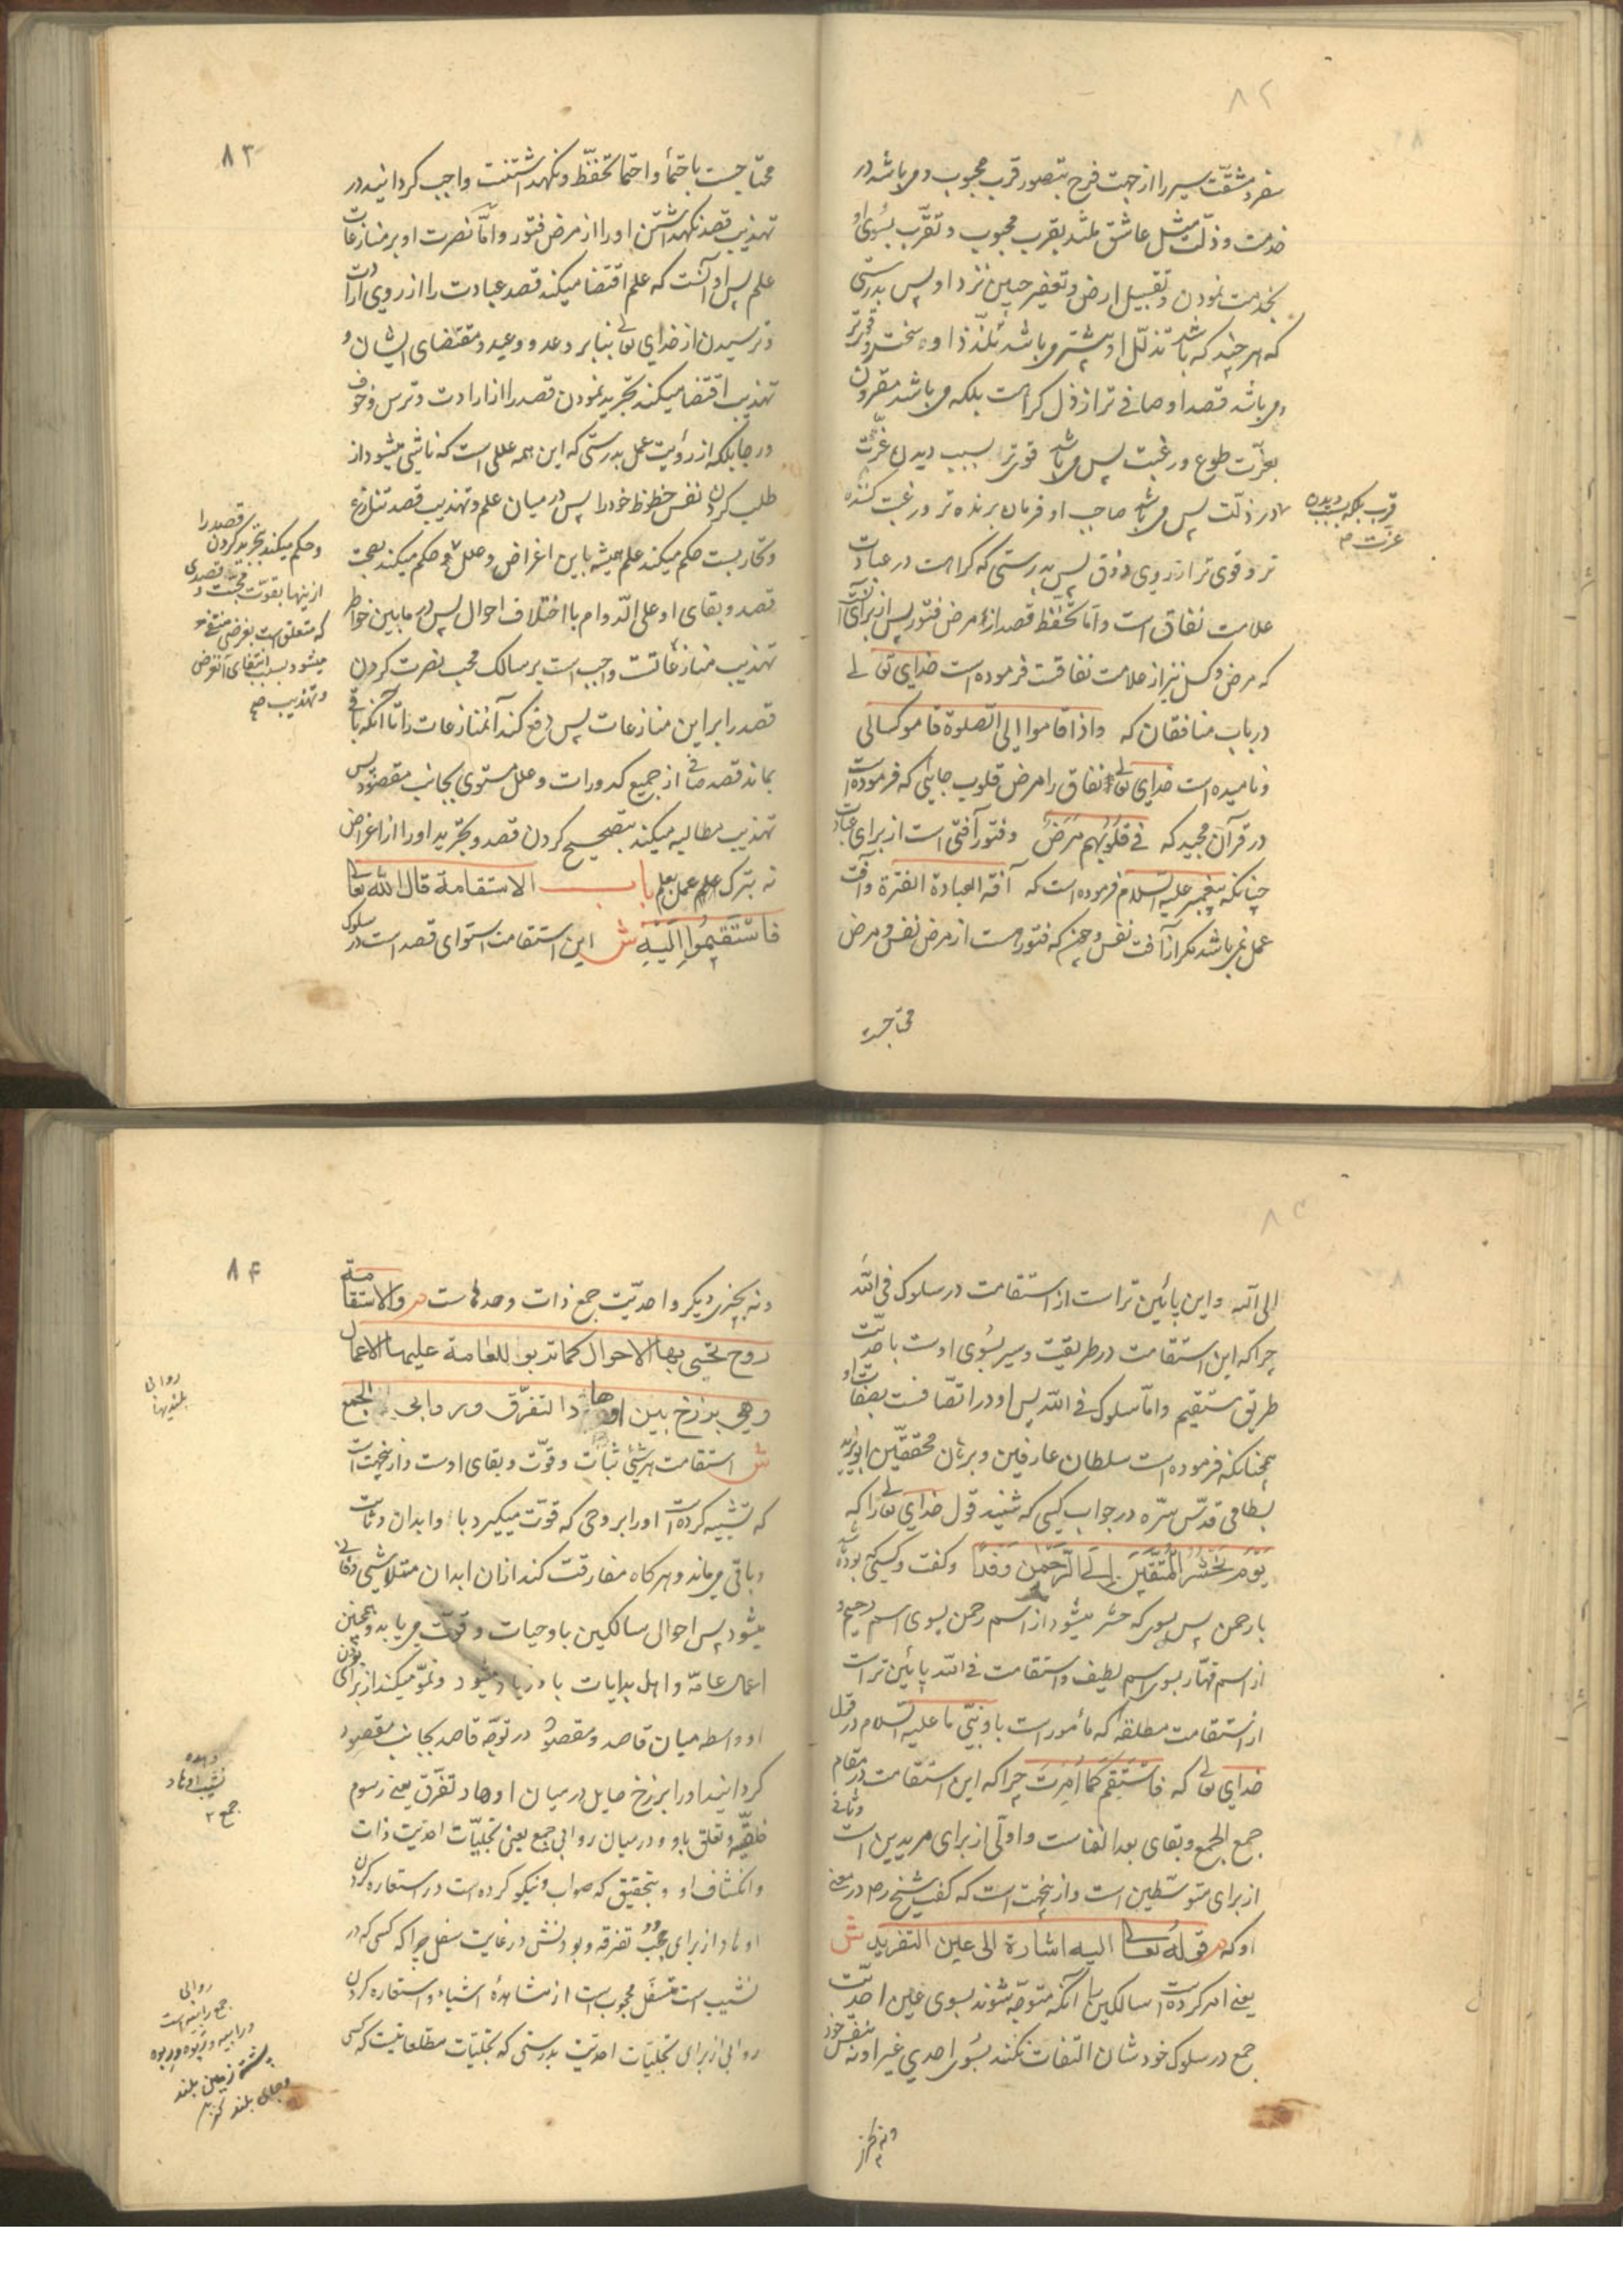 ۸۲
سفر و مشقّت سیر را از جهت فرح بتصور قرب محبوب و می باشد در
خدمت و ذلّت مثل عاشق ملتذ بقرب محبوب و تقرّب بسوی او
بخدمت نمودن و تقبیل ارض و تعفیر جبین نزد او پس بدرستی
که هر چند که باشد تذلّل او بیشتر می باشد تلذّذ او سخت تر و قوی تر
و می باشد قصد او صافی تر از ذل کراهت بلکه می باشد مقرون
بعزّت طوع و رغبت پس می باشد قوی تر بسبب دیدن عزّت
در ذلّت پس می باشد صاحب او فرمان برنده تر و رغبت کننده
قرب بلکه بسبب دیدن
عزت
تر و قوی تر از روی ذوق پس بدرستی که کراهت در عبادت
علامت نفاق است و امّا تحفّظ قصد از مرض فتور پس از برای آنست
که مرض و کسل نیز از علامت نفاقست فرموده است خدای تعالی
در باب منافقان که واذا قاموا الی الصلوة قاموا کسالی
و نامیده است خدای تعالی نفاق را مرض قلوب جایی که فرموده است
در قرآن مجید که فی قلوبهم مرض و فتور آفتی است از برای عبادت
چنانکه پیغمبر علیه السلام فرموده است که آفة العبادة الفترة و آفت
عمل نمی باشد مگر از آفت نفس و چیزی که فتور است از مرض نفس و مرض
محتاجست
۸۳
محتاجست باحتما و احتما تحفّظ و نگهداشتنست واجب گردانید در
تهذیب قصد نگهداشتن او را از مرض فتور و امّا نصرت او بر منازعات
علم پس او آنست که علم اقتضا میکند قصد عبادت را از روی ارادت
و ترسیدن از خدای تعالی بنا بر وعد و وعید و مقتضای ایشان و
تهذیب اقتضا میکند تجرید نمودن قصد را از ارادت و ترس و خوف
و رجا بلکه از رؤیت عمل بدرستی که این همه عللی است که ناشی میشود از
طلب کردن نفس حظوظ خود را پس در میان علم و تهذیب قصد تنازع
و تحاربست حکم میکند علم همیشه باین اغراض و علل و حکم میکند بصحت
قصد و بقای او علی الدّوام با اختلاف احوال پس در مابین خواطر
تهذیب منازعاتست واجب است بر سالک محب نصرت کردن
قصد را بر این منازعات پس دفع کند آن منازعات را تا آنکه باقی
بماند قصد صافی از جمیع کدورات و علل مستوی بجانب مقصود پس
تهذیب مطالبه میکند بتصحیح کردن قصد و تجرید او را از اغراض
نه بترک علم عمل بعلم باب الاستقامة قال الله تعالی
فاستقیموا الیه ش این استقامت استوای قصد است در سلوک
قصد را
و حکم میکند بتجرید کردن
از اینها بقوت محبت و قصدی
که متعلق است بغرضی منتفی
میشود بسبب انتفای آن غرض
و تهذیب صح
الی الله و این پائین تر است از استقامت در سلوک فی الله
چرا که این استقامت در طریقت و سیر بسوی اوست با احدیّت
طریق مستقیم و امّا سلوک فی الله پس او در اتّصافست بصفات او
همچنانکه فرموده است سلطان عارفین و برهان محققین ابو یزید
بسطامی قدّس سرّه در جواب کسی که شنید قول خدای تعالی را که
یوم نحشر المتقین الی الرحمن وفدا و گفت و کسی که بوده باشد
با رحمن پس بسوی که حشر میشود از اسم رحمن بسوی اسم رحیم و
از اسم قهّار بسوی اسم لطیف و استقامت فی الله پائین تر است
از استقامت مطلقه که مأمور است باو نبیّ ما علیه السلام در قول
خدای تعالی که فاستقم کما امرت چرا که این استقامت در مقام
جمع الجمع و بقای بعد الفناست و اولی از برای مریدین است و ثانی
از برای متوسّطین است و از اینجهت است که گفت شیخ رح در معنی
او که م قوله تعالی الیه اشارة الی عین التفرید ش
یعنی امر کرده است سالکین را آنکه متوجّه شوند بسوی عین احدیّت
جمع در سلوک خودشان التفات نکنند بسوی احدی غیر او نه بنفس خود
و نه بچیز
۸۴
و نه بچیزی دیگر و احدیّت جمع ذات وحدهاست م والاستقامة
روح تحیی بها الاحوال کما تربو للعامة علیها الاعمال
وهی برزخ بین اوهاد التفرّق وروابی الجمع
ش استقامت هر شئ ثبات و قوّت و بقای اوست و از اینجهت است
که تشبیه کرده است او را بروحی که قوّت میگیرد باو ابدان و ثابت
و باقی می ماند و هر گاه مفارقت کند از ان ابدان متلاشی و فانی
میشود پس احوال سالکین باو حیات و قوّت می یابد و همچنین
اعمال عامّه و اهل بدایات باو زیاد میشود و نموّ میکند از برای بودن
او واسطه میان قاصد و مقصود در توجّه قاصد بجانب مقصود
گردانید او را برزخ حایل در میان اوهاد تفرّق یعنی رسوم
خلقیّه و تعلق باو و در میان روابی جمع یعنی تجلیّات احدیت ذات
و انکشاف او و بتحقیق که صواب و نیکو کرده است در استعاره کردن
اوهاد از برای حجب تفرقه و بودنش در غایت سفل چرا که کسی که در
نشیب است متسفّل محجوب است از مشاهدهٔ اشیاء و استعاره کردن
روابی از برای تجلیّات احدیّت بدرستی که تجلیّات مطلعاتیست که کسی
روابی
بلندیها
وهده
نشیب اوهاد
جمع
روابی
جمع رابیه است
و رابیه و ربوه و ربوه
پشته زمین بلند
و جای بلند گویند